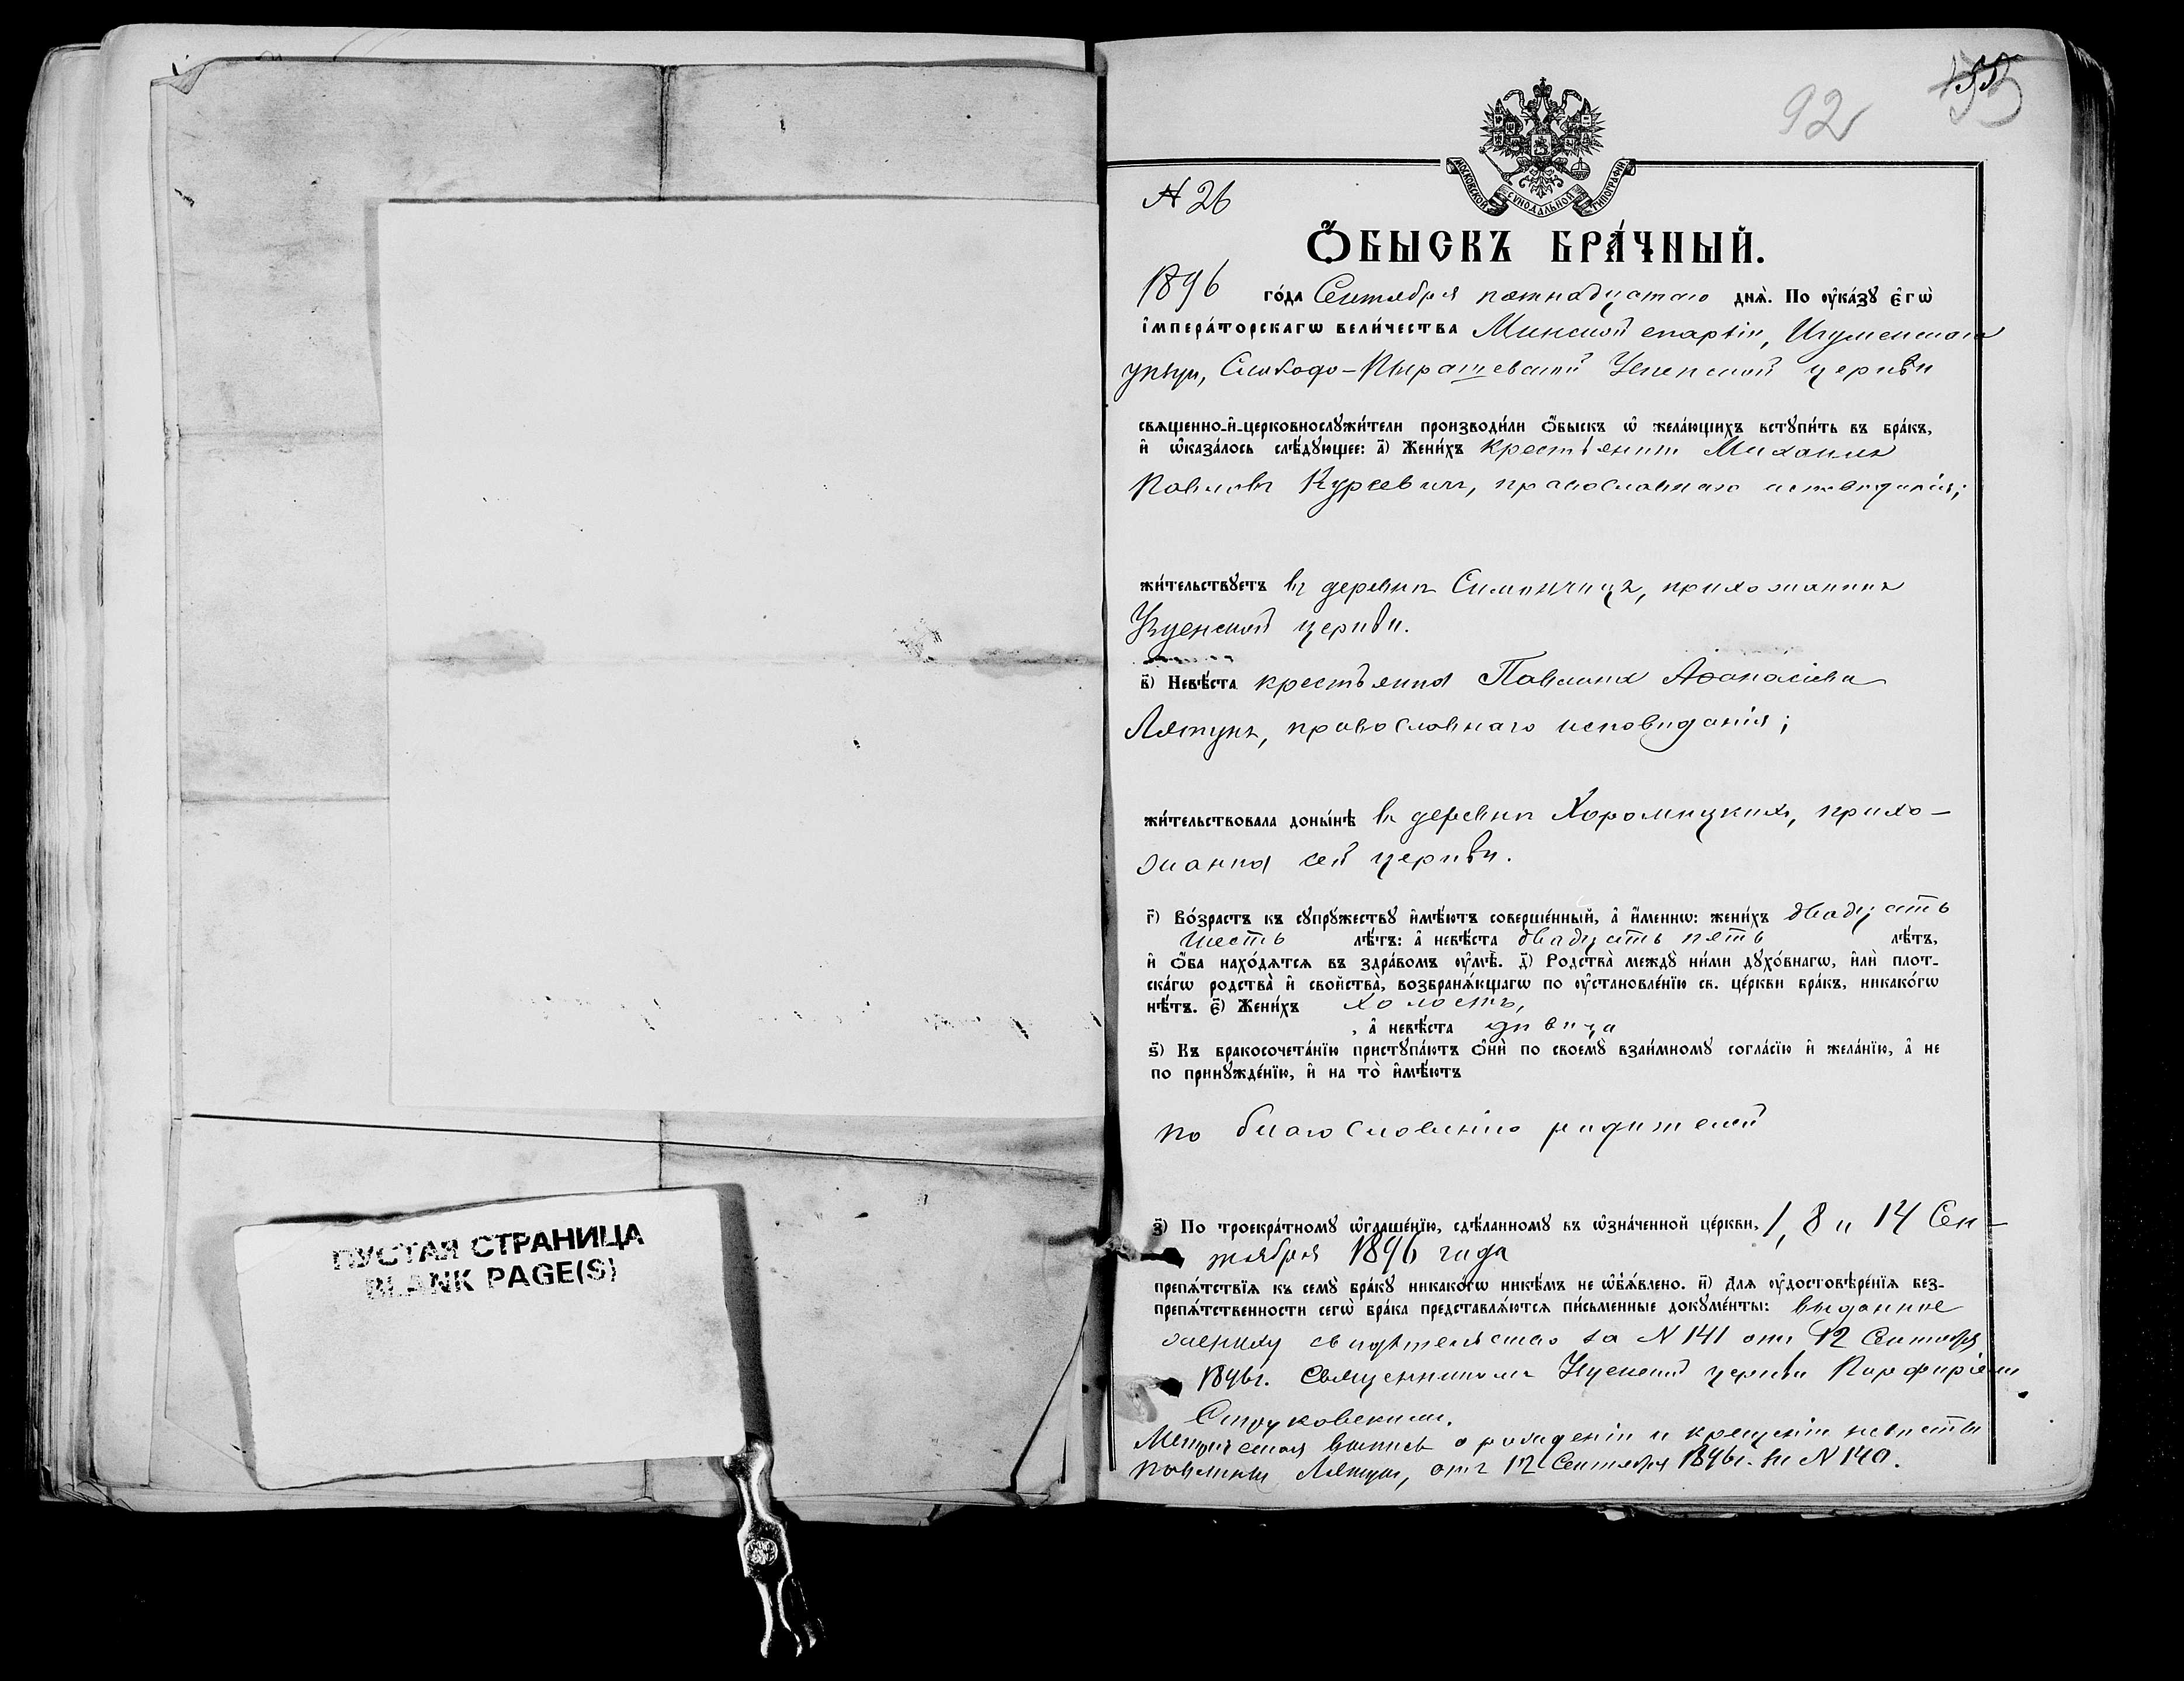 ПУСТАЯ СТРАНИЦА
BLANK PAGE(S)
92
МОСКОВСКОЙ СѴНОДАЛЬНОЙ ТИПОГРАФІИ
№ 26
Ѻ҆́БЫСКЪ БРА́ЧНЫЙ.
1896 го́да Сентября пятнадцатаго днѧ̀. По ᲂу҆ка́зꙋ є҆гѡ̀
і҆мпера́торскагѡ вели́чества Минской епархіи, Игуменскаго
уѣзда, Слободо-Пырашевской Успенской церкви
свѧще́нно-и҆-церковнослꙋжи́тели производи́ли ѻ҆́быскъ ѡ҆ жела́ющихъ встꙋпи́ть въ бра́къ,
и҆ ѡ҆каза́лось слѣ́дꙋющее: а҃) Жени́хъ крестьянинъ Михаилъ
Павловъ Курсевичъ, православнаго исповѣданія;
жи́тельствꙋетъ въ деревнѣ Симоничцѣ, прихожанинъ
Узденской церкви.
в҃) Невѣ́ста крестьянка Павлина Аѳанасіева
Лятунъ, православнаго исповѣданія;
жи́тельствовала доны́нѣ въ деревнѣ Хоромицкихъ, прихо-
жанка сей церкви.
г҃) Во́зрастъ къ сꙋпрꙋ́жествꙋ и҆мѣ́ютъ соверше́нный, а҆ и҆́меннѡ: жени́хъ двадцать
шесть лѣ́тъ: а҆ невѣ́ста двадцать пять лѣ́тъ,
и҆ ѻ҆́ба нахо́дѧтсѧ въ здра́вомъ ᲂу҆мѣ̀. д҃) Родства̀ междꙋ̀ ни́ми дꙋхо́внагѡ, и҆лѝ плот-
ска́гѡ родства̀ и҆ сво́йства, возбранѧ́ющагѡ по ᲂу҆становле́нїю св. це́ркви бра́къ, никако́гѡ
нѣ́тъ. є҃) Жени́хъ холостъ,
, а҆ невѣ́ста дѣвица
ѕ҃) Къ бракосочета́нїю пристꙋпа́ютъ ѻ҆нѝ по своемꙋ̀ взаи́мномꙋ согла́сїю и҆ жела́нїю, а҆ не
по принꙋжде́нїю, и҆ на то̀ и҆мѣ́ютъ
по благословенію родителей
з҃) По троекра́тномꙋ ѡ҆глаше́нїю, сдѣ́ланномꙋ въ ѡ҆зна́ченной це́ркви, 1, 8 и 14 Сен-
тября 1896 года
препѧ́тствїѧ къ семꙋ̀ бра́кꙋ никако́гѡ никѣ́мъ не ѡ҆б̾ѧ́влено. и҃) Длѧ ᲂу҆достовѣре́нїѧ без-
препѧ́тственности сегѡ̀ бра́ка представлѧ́ютсѧ пи́сьменные докꙋме́нты: выданное
жениху свидѣтельство за № 141 отъ 12 Сентября
1896г. Священникомъ Узденской церкви Порфиріемъ
Струковскимъ.
Метрическая выпись о рожденіи и крещеніи невѣсты
Павлины Лятунъ, отъ 12 Сентября 1896г. за № 140.